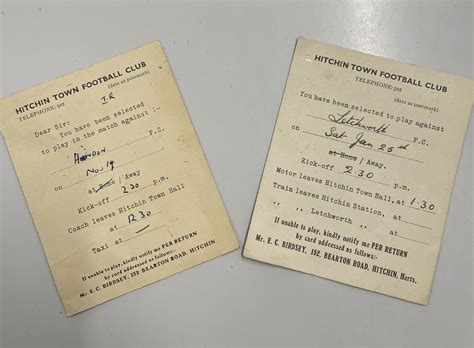 HITCHIN TOWN FOOTBALL CLUB
TELEPHONE: 502
(date as postmark)
Dear Sir:
You have been selected
to play in the match against :—
HENDON F.C.
on Nov 19
at Home / Away.
Kick-off 2.30 p.m.
Coach leaves Hitchin Town Hall
at 12.30
Taxi at
If unable to play, kindly notify me PER RETURN
by card addressed as follows:—
Mr. E. C. BIRDSEY, 152 BEARTON ROAD, HITCHIN.
HITCHIN TOWN FOOTBALL CLUB
TELEPHONE: 502
(date as postmark)
You have been selected to play against
Letchworth F.C.
on Sat Jan 25th
at Home / Away.
Kick-off 2.30 p.m.
Motor leaves Hitchin Town Hall, at 1.30
Train leaves Hitchin Station, at
„ Letchworth „ at
If unable to play, kindly notify me PER RETURN
by card addressed as follows:-
Mr. E. C. BIRDSEY, 152, BEARTON ROAD, HITCHIN, Herts.